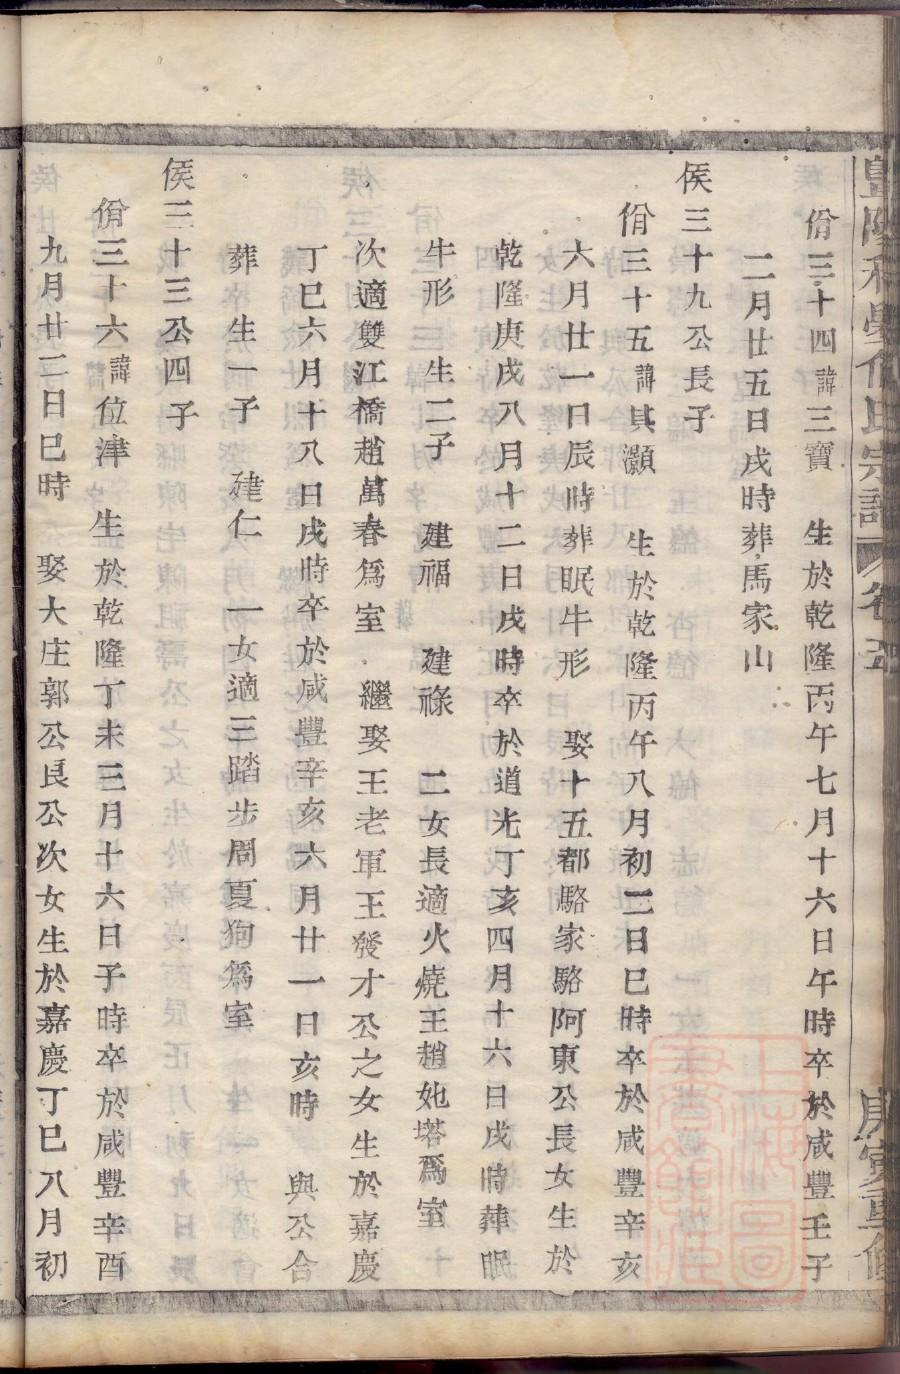 佾三十四諱三寶　生於乾隆丙午七月十六日午時卒於咸豐壬子
二月廿五日戌時葬馬家山
侯三十九公長子
佾三十五諱其灝　生於乾隆丙午八月初三日巳時卒於咸豐辛亥
六月廿一日辰時葬眠牛形　娶十五都駱家駱阿東公長女生於
乾隆庚戌八月十二日戌時卒於道光丁亥四月十六日戌時葬眠
牛形　生二子　建福　建祿　二女長適火燒王趙虵塔爲室
次適雙江橋趙萬春爲室　繼娶王老軍王發才公之女生於嘉慶
丁巳六月十八日戌時卒於咸豐辛亥六月廿一日亥時　與公合
葬　生一子　建仁　一女適三踏步周夏狗爲室
侯三十三公四子
佾三十六諱位津　生於乾隆丁未三月十六日子時卒於咸豐辛酉
九月廿二日巳時　娶大庄郭公良公次女生於嘉慶丁巳八月初
氏宗譜　卷五　庚寅重修